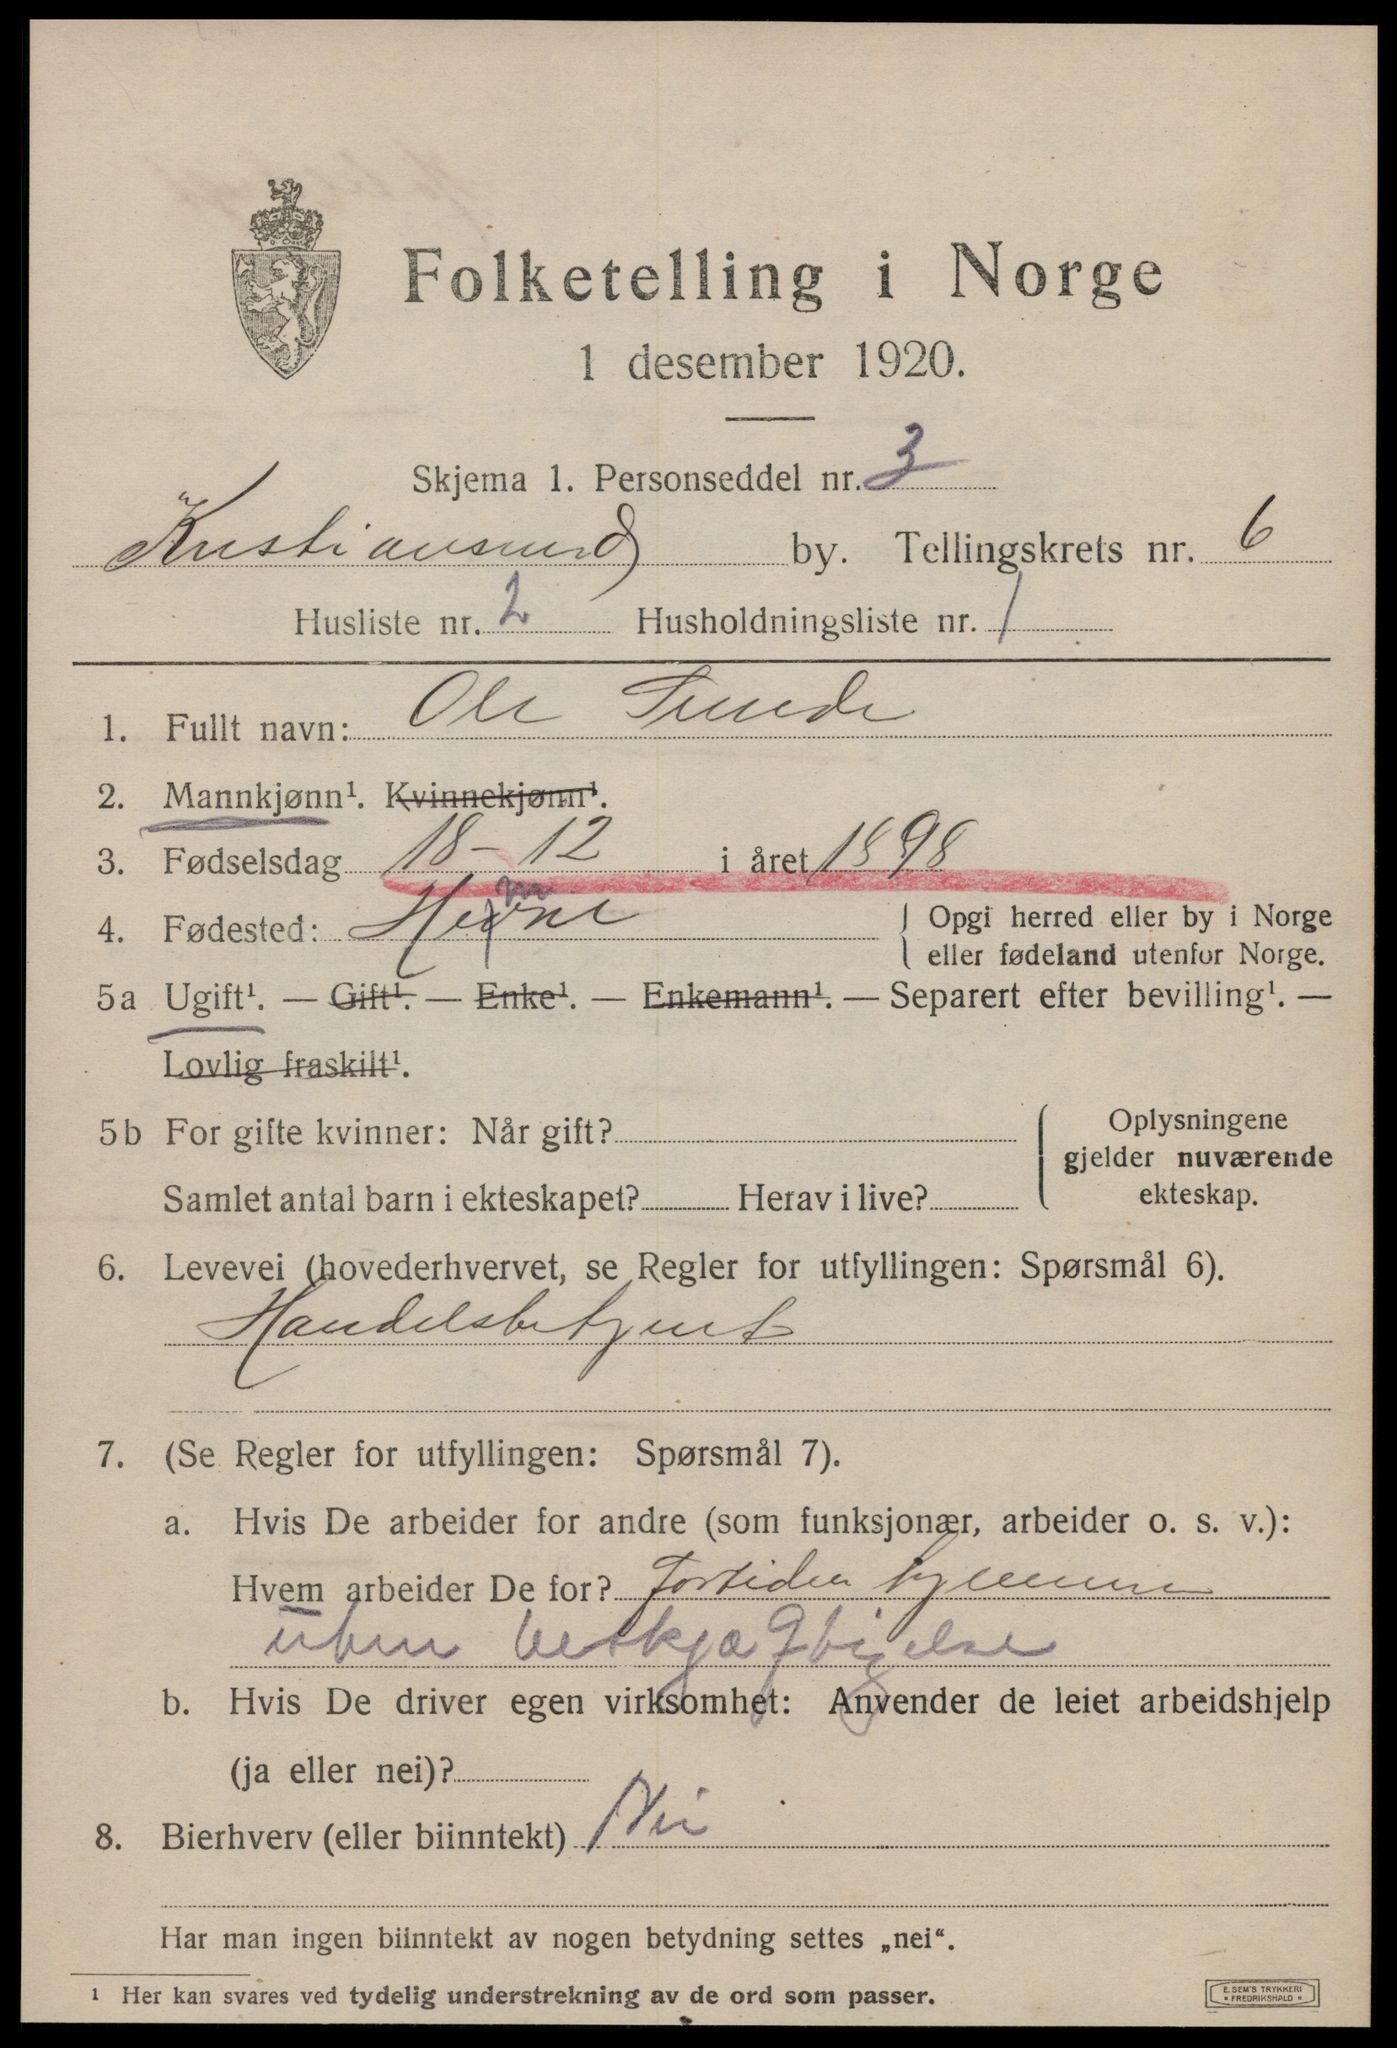 Folketelling i Norge
1 desember 1920.
Skjema 1. Personseddel nr. 3
Kristiansund by. Tellingskrets nr. 6
Husliste nr. 2 Husholdningsliste nr. 1
1. Fullt navn: Ole
2. Mannkjønn¹. Kvinnekjønn¹.
3. Fødselsdag 18-12 i året 1898
4. Fødested: Opgi herred eller by i Norge
eller fødeland utenfor Norge.
5a Ugift¹. — Gift¹. — Enke¹. — Enkemann¹. — Separert efter bevilling¹. —
Lovlig fraskilt¹.
5b For gifte kvinner: Når gift? Oplysningene
gjelder nuværende
Samlet antal barn i ekteskapet? Herav i live? ekteskap.
6. Levevei (hovederhvervet, se Regler for utfyllingen: Spørsmål 6).
Handelsbetjent
7. (Se Regler for utfyllingen: Spørsmål 7).
a. Hvis De arbeider for andre (som funksjonær, arbeider o. s. v.):
Hvem arbeider De for? Fortiden hjemme
uten beskjæftigelse
b. Hvis De driver egen virksomhet: Anvender de leiet arbeidshjelp
(ja eller nei)?
8. Bierhverv (eller biinntekt) Nei
Har man ingen biinntekt av nogen betydning settes „nei“.
¹ Her kan svares ved tydelig understrekning av de ord som passer.
E. SEM'S TRYKKERI
FREDRIKSHALD